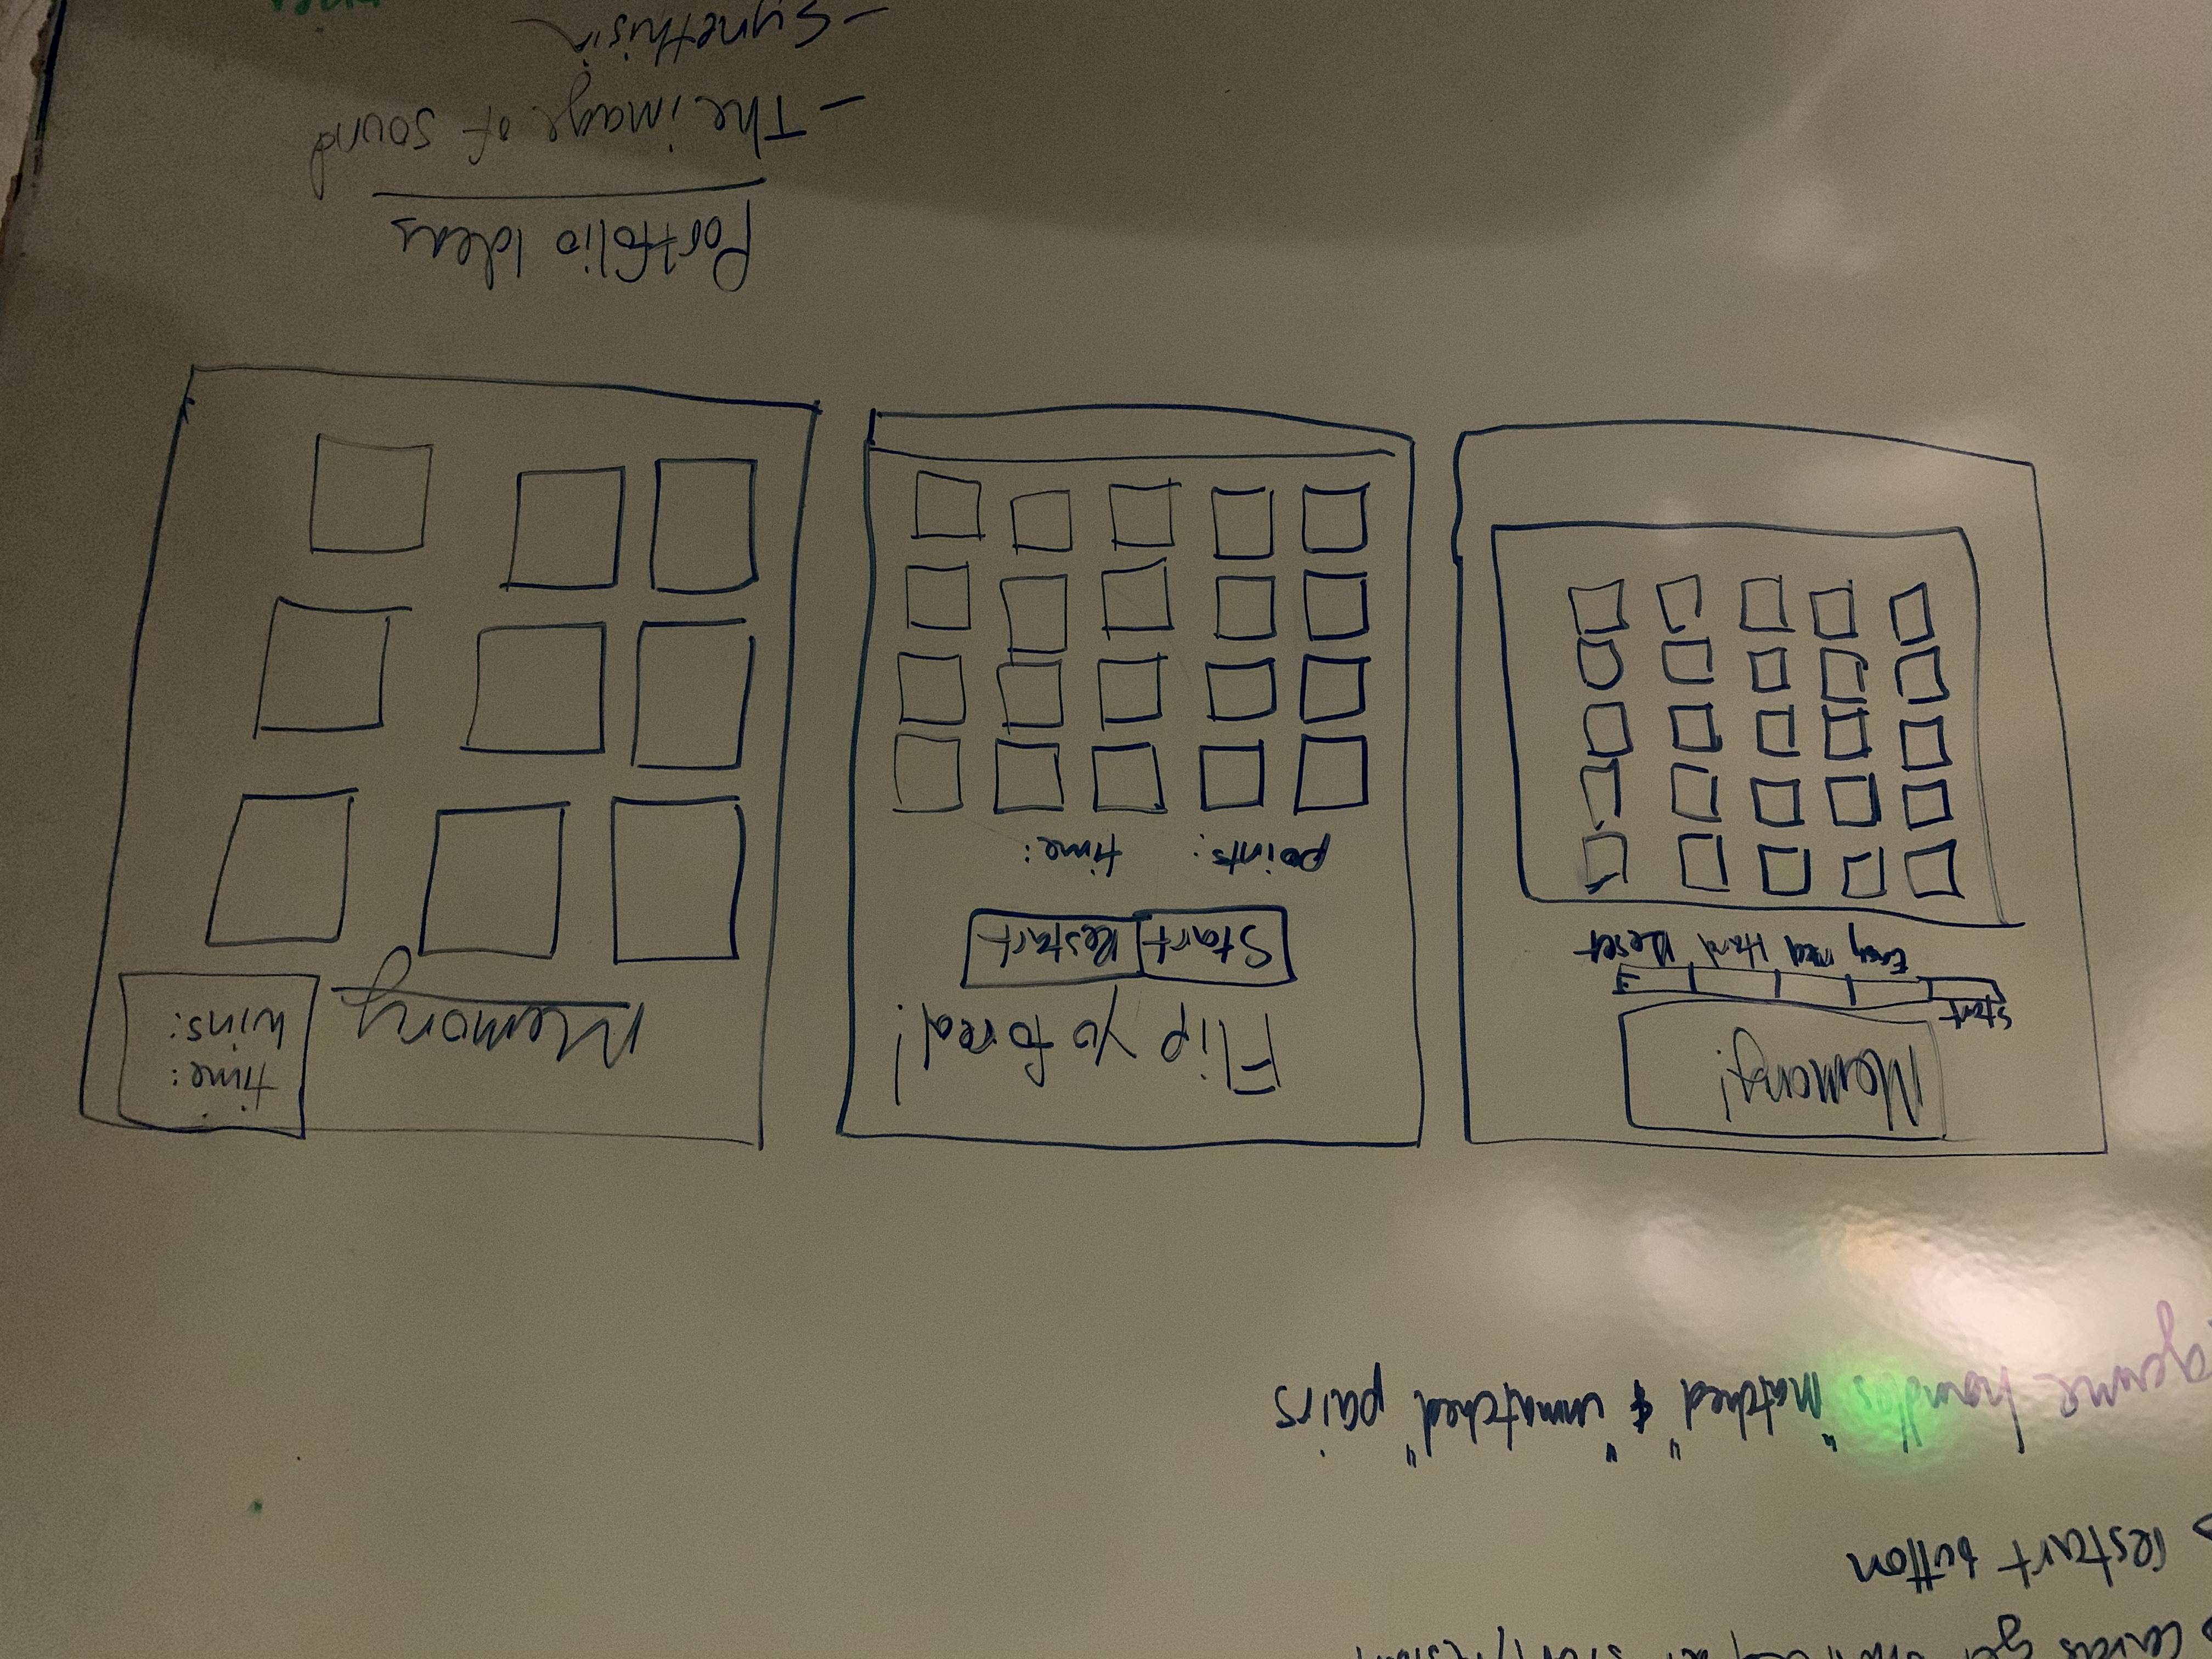 cards get shuffled at start/restart
restart button
game handles "matched" & "unmatched" pairs
Memory!
Start
Easy med Hard Reset
Flip yo foreal!
Start Restart
points: time:
Memory
time:
wins:
Portfolio Ideas
- The image of sound
- Synethisia